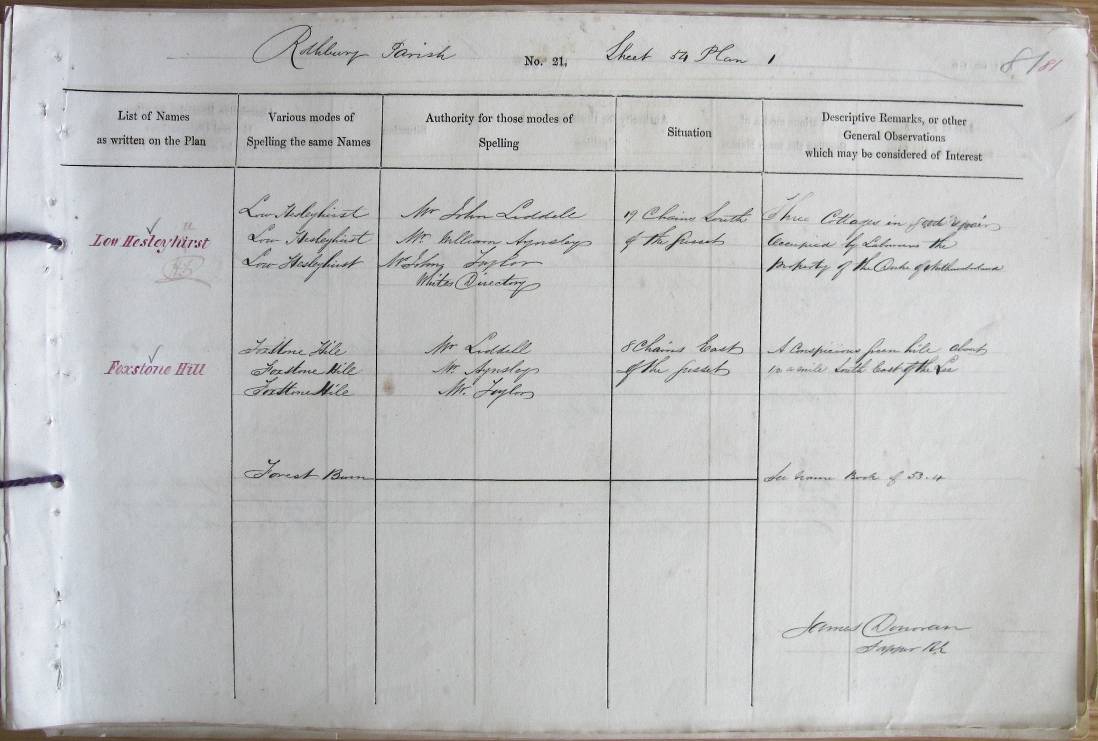 Rothbury Parish No. 21, Sheet 54 Plan 1 81
List of Names
as written on the Plan
Various modes of
Spelling the same Names
Authority for those modes of
Spelling
Situation
Descriptive Remarks, or other
General Observations
which may be considered of Interest
Low Hesleyhirst
Low Hesleyhirst
Low Hesleyhirst
Low Hesleyhurst
Mr John Liddell
Mr. William Aynsley
Mr John Taylor
Whites Directory
19 Chains South
of the gusset
Three Cottages in good repair
Occupied by Labourers the
property of the Duke of Northumberland
Foxstone Hill
Foxstone Hill
Foxstone Hill
Foxstone Hill
Mr Liddell
Mr. Aynsley
Mr. Taylor
8 Chains East
of the gusset
A Conspicious green hill about
1/2 a mile South East of the Lee
Forest Burn
See Name Book of 53.4
James Donovan
Sapper RE